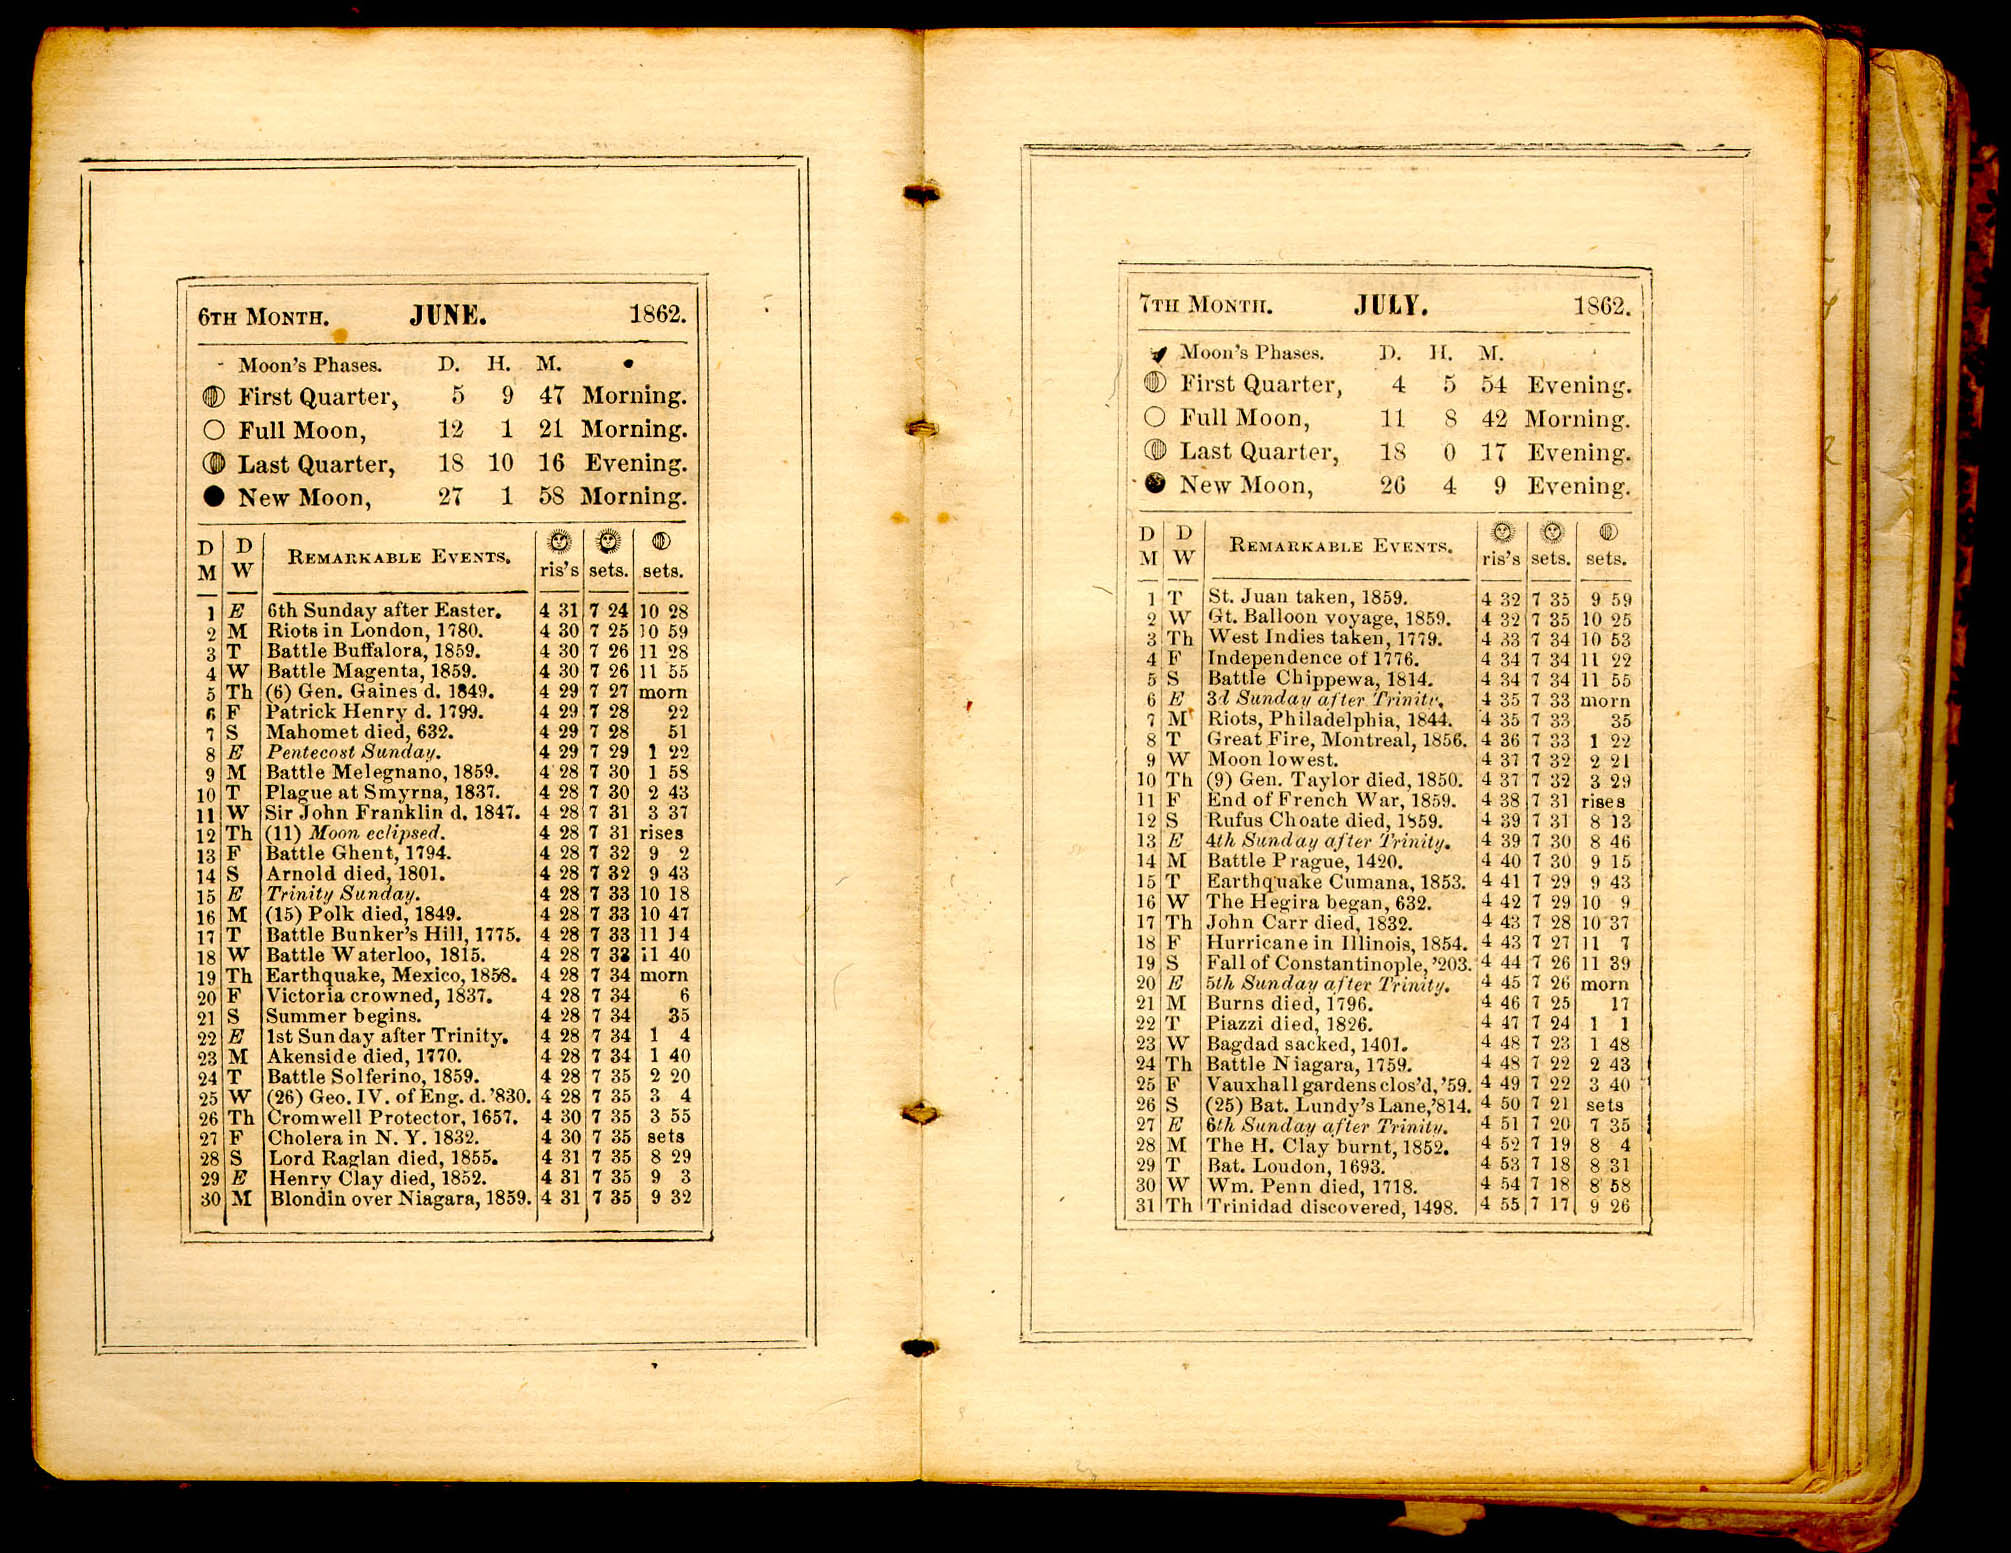 6TH MONTH. JUNE. 1862.
Moon's Phases. D. H. M.
First Quarter, 5 9 47 Morning.
Full Moon, 12 1 21 Morning.
Last Quarter, 18 10 16 Evening.
New Moon, 27 1 58 Morning.
D M D W REMARKABLE EVENTS. ris's sets. sets.
1 E 6th Sunday after Easter. 4 31 7 24 10 28
2 M Riots in London, 1780. 4 30 7 25 10 59
3 T Battle Buffalora, 1859. 4 30 7 26 11 28
4 W Battle Magenta, 1859. 4 30 7 26 11 55
5 Th (6) Gen. Gaines d. 1849. 4 29 7 27 morn
6 F Patrick Henry d. 1799. 4 29 7 28 22
7 S Mahomet died, 632. 4 29 7 28 51
8 E Pentecost Sunday. 4 29 7 29 1 22
9 M Battle Melegnano, 1859. 4 28 7 30 1 58
10 T Plague at Smyrna, 1837. 4 28 7 30 2 43
11 W Sir John Franklin d. 1847. 4 28 7 31 3 37
12 Th (11) Moon eclipsed. 4 28 7 31 rises
13 F Battle Ghent, 1794. 4 28 7 32 9 2
14 S Arnold died, 1801. 4 28 7 32 9 43
15 E Trinity Sunday. 4 28 7 33 10 18
16 M (15) Polk died, 1849. 4 28 7 33 10 47
17 T Battle Bunker's Hill, 1775. 4 28 7 33 11 14
18 W Battle Waterloo, 1815. 4 28 7 33 11 40
19 Th Earthquake, Mexico, 1858. 4 28 7 34 morn
20 F Victoria crowned, 1837. 4 28 7 34 6
21 S Summer begins. 4 28 7 34 35
22 E 1st Sunday after Trinity. 4 28 7 34 1 4
23 M Akenside died, 1770. 4 28 7 34 1 40
24 T Battle Solferino, 1859. 4 28 7 35 2 20
25 W (26) Geo. IV. of Eng. d. '830. 4 28 7 35 3 4
26 Th Cromwell Protector, 1657. 4 30 7 35 3 55
27 F Cholera in N. Y. 1832. 4 30 7 35 sets
28 S Lord Raglan died, 1855. 4 31 7 35 8 29
29 E Henry Clay died, 1852. 4 31 7 35 9 3
30 M Blondin over Niagara, 1859. 4 31 7 35 9 32
7TH MONTH. JULY. 1862.
Moon's Phases. D. H. M.
First Quarter, 4 5 54 Evening.
Full Moon, 11 8 42 Morning.
Last Quarter, 18 0 17 Evening.
New Moon, 26 4 9 Evening.
D M D W REMARKABLE EVENTS. ris's sets. sets.
1 T St. Juan taken, 1859. 4 32 7 35 9 59
2 W Gt. Balloon voyage, 1859. 4 32 7 35 10 25
3 Th West Indies taken, 1779. 4 33 7 34 10 53
4 F Independence of 1776. 4 34 7 34 11 22
5 S Battle Chippewa, 1814. 4 34 7 34 11 55
6 E 3d Sunday after Trinity. 4 35 7 33 morn
7 M Riots, Philadelphia, 1844. 4 35 7 33 35
8 T Great Fire, Montreal, 1856. 4 36 7 33 1 22
9 W Moon lowest. 4 37 7 32 2 21
10 Th (9) Gen. Taylor died, 1850. 4 37 7 32 3 29
11 F End of French War, 1859. 4 38 7 31 rises
12 S Rufus Choate died, 1859. 4 39 7 31 8 13
13 E 4th Sunday after Trinity. 4 39 7 30 8 46
14 M Battle Prague, 1420. 4 40 7 30 9 15
15 T Earthquake Cumana, 1853. 4 41 7 29 9 43
16 W The Hegira began, 632. 4 42 7 29 10 9
17 Th John Carr died, 1832. 4 43 7 28 10 37
18 F Hurricane in Illinois, 1854. 4 43 7 27 11 7
19 S Fall of Constantinople, '203. 4 44 7 26 11 39
20 E 5th Sunday after Trinity. 4 45 7 26 morn
21 M Burns died, 1796. 4 46 7 25 17
22 T Piazzi died, 1826. 4 47 7 24 1 1
23 W Bagdad sacked, 1401. 4 48 7 23 1 48
24 Th Battle Niagara, 1759. 4 48 7 22 2 43
25 F Vauxhall gardens clos'd, '59. 4 49 7 22 3 40
26 S (25) Bat. Lundy's Lane, '814. 4 50 7 21 sets
27 E 6th Sunday after Trinity. 4 51 7 20 7 35
28 M The H. Clay burnt, 1852. 4 52 7 19 8 4
29 T Bat. Loudon, 1693. 4 53 7 18 8 31
30 W Wm. Penn died, 1718. 4 54 7 18 8 58
31 Th Trinidad discovered, 1498. 4 55 7 17 9 26